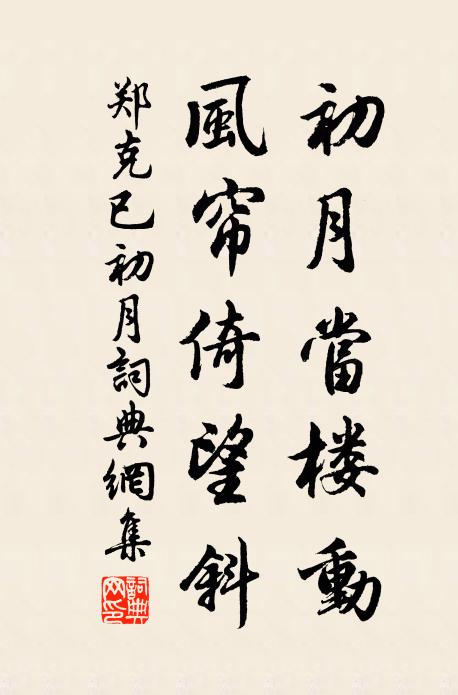 初月當楼動
風帘倚望斜
郑克已初月詞典網集
詞典网印